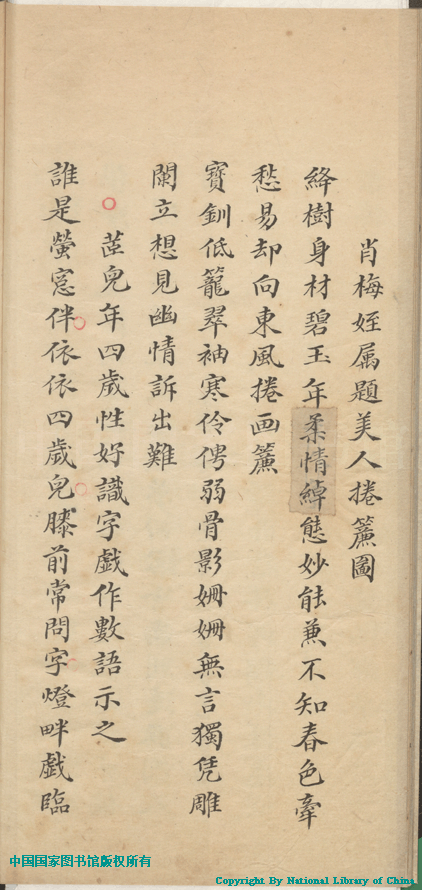 肖梅姪属題美人捲簾圖
絳樹身材碧玉年柔情綽態妙能兼不知春色牽
愁易却向東風捲画簾
寳釧低籠翠袖寒伶俜弱骨影姗姗無言獨凭雕
闌立想見幽情訴出難
茝兒年四歲性好識字戯作數語示之
誰是螢窓伴依依四歲兒膝前常問字燈畔戯臨
中国国家图书馆版权所有
Copyright By National Library of China